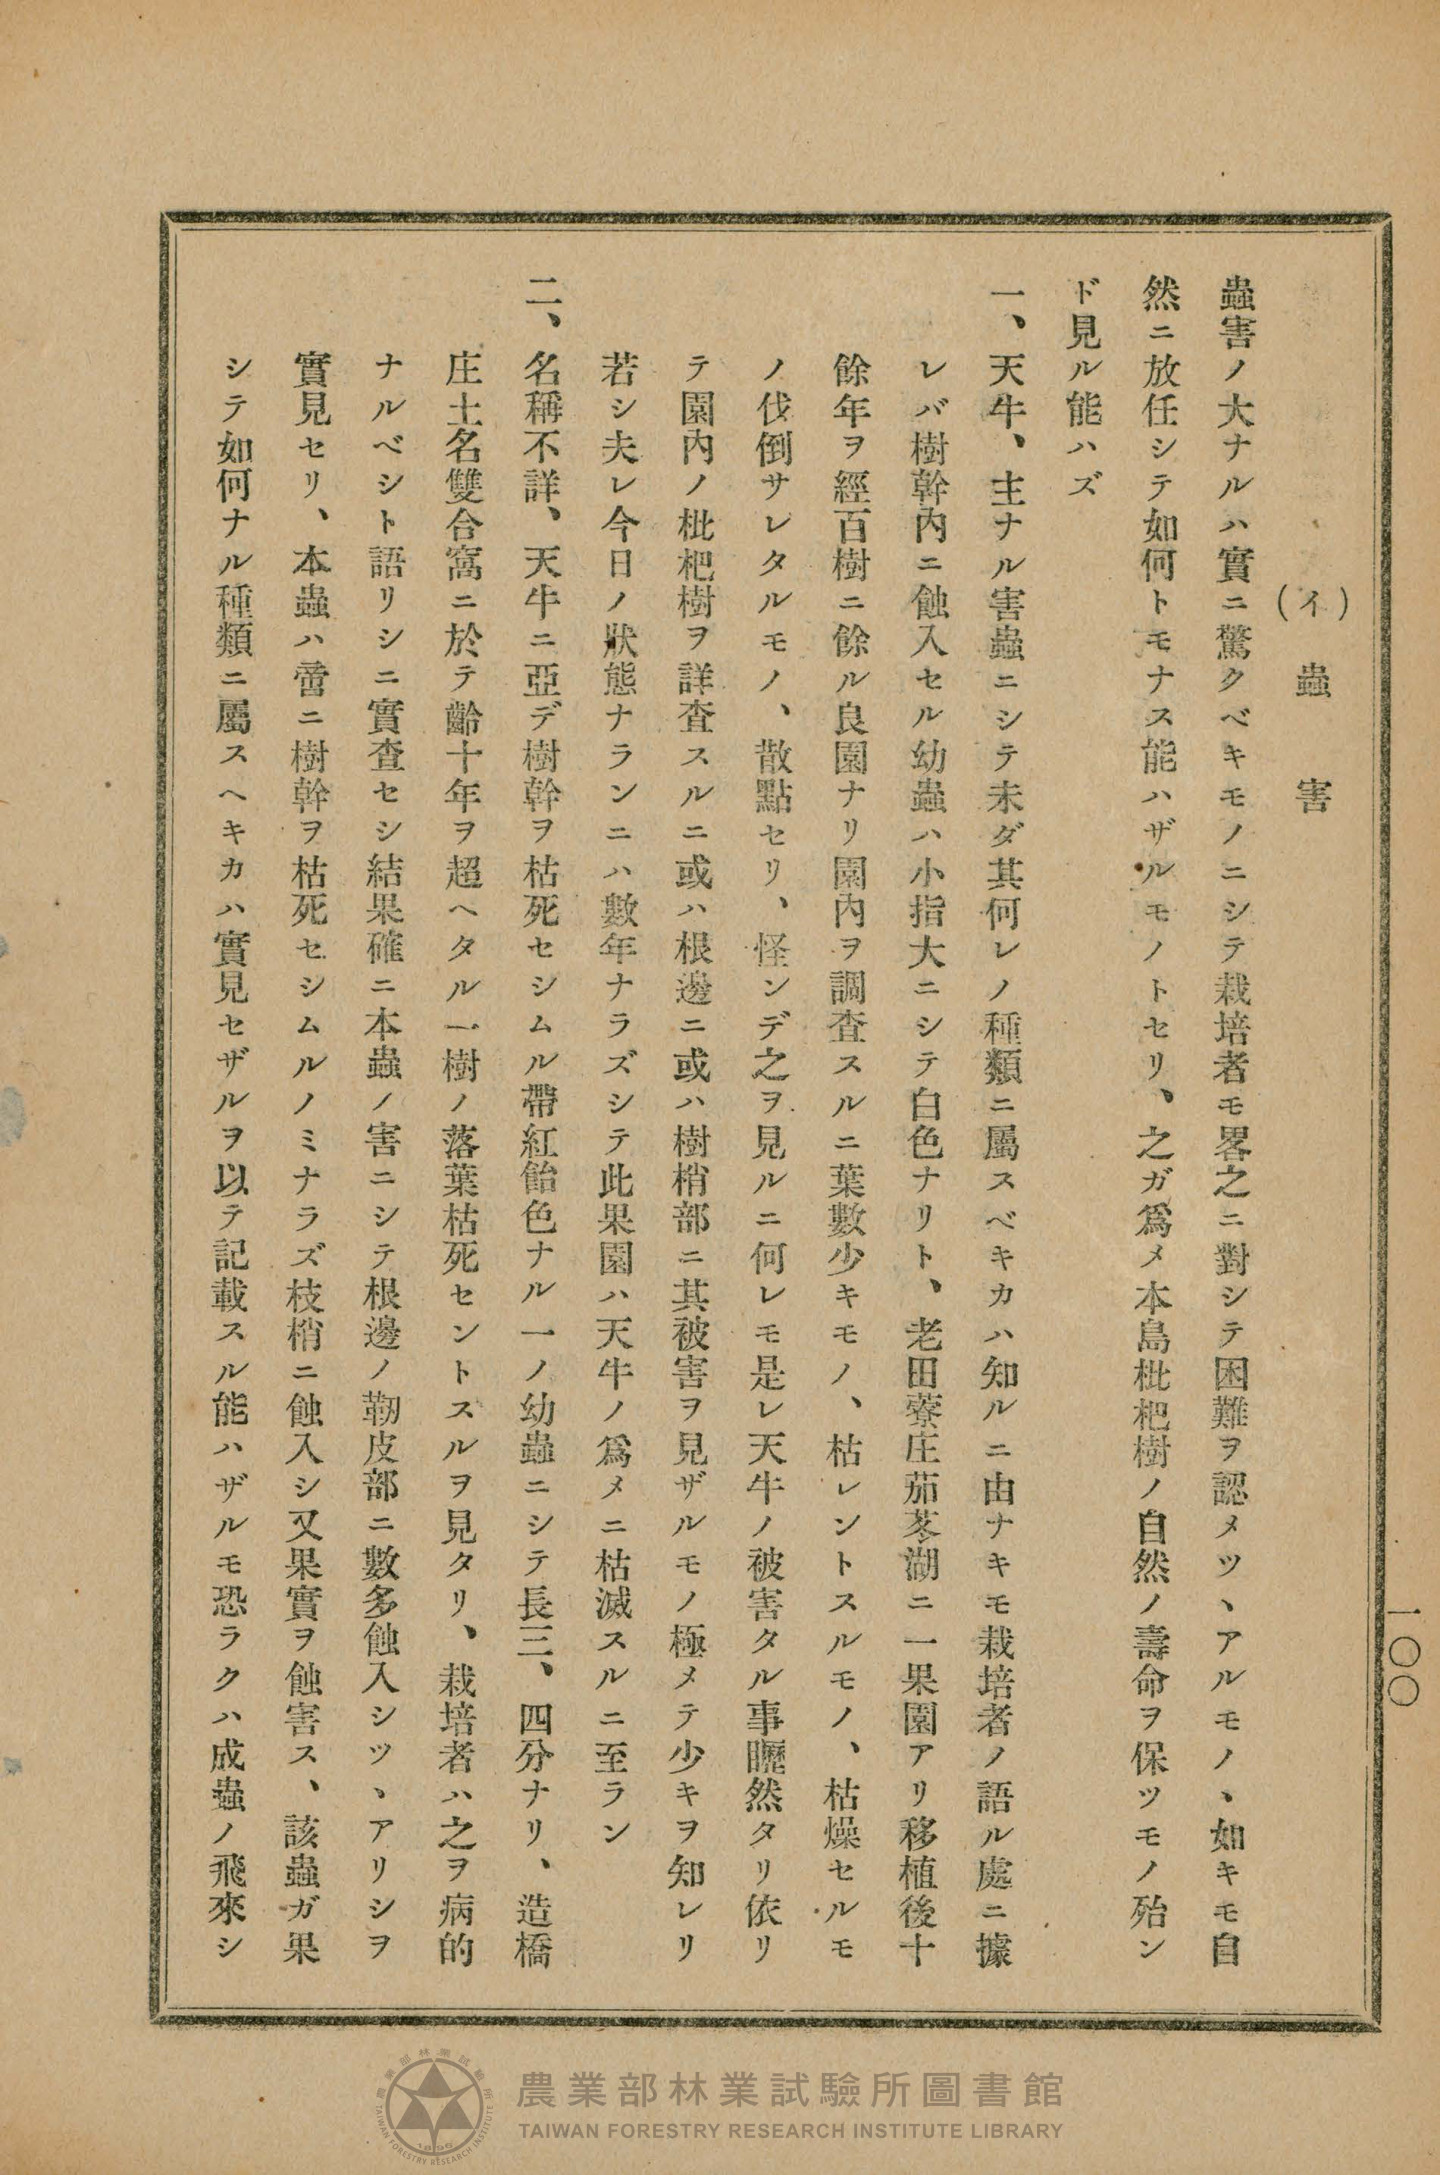 一〇〇
（イ）蟲害
蟲害ノ大ナルハ實ニ驚クベキモノニシテ栽培者モ畧之ニ對シテ困難ヲ認メツヽアルモノヽ如キモ自
然ニ放任シテ如何トモナス能ハザルモノトセリ、之ガ爲メ本島枇杷樹ノ自然ノ壽命ヲ保ツモノ殆ン
ド見ル能ハズ
一、天牛、主ナル害蟲ニシテ未ダ其何レノ種類ニ屬スベキカハ知ルニ由ナキモ栽培者ノ語ル處ニ據
レバ樹幹内ニ蝕入セル幼蟲ハ小指大ニシテ白色ナリト、老田藔庄茄苳湖ニ一果園アリ移植後十
餘年ヲ經百樹ニ餘ル良園ナリ園内ヲ調査スルニ葉數少キモノ、枯レントスルモノ、枯燥セルモ
ノ伐倒サレタルモノ、散點セリ、怪ンデ之ヲ見ルニ何レモ是レ天牛ノ被害タル事瞭然タリ依リ
テ園内ノ枇杷樹ヲ詳査スルニ或ハ根邊ニ或ハ樹梢部ニ其被害ヲ見ザルモノ極メテ少キヲ知レリ
若シ夫レ今日ノ狀態ナランニハ數年ナラズシテ此果園ハ天牛ノ爲メニ枯滅スルニ至ラン
二、名稱不詳、天牛ニ亞デ樹幹ヲ枯死セシムル帶紅飴色ナル一ノ幼蟲ニシテ長三、四分ナリ、造橋
庄土名雙合窩ニ於テ齡十年ヲ超ヘタル一樹ノ落葉枯死セントスルヲ見タリ、栽培者ハ之ヲ病的
ナルベシト語リシニ實査セシ結果確ニ本蟲ノ害ニシテ根邊ノ靭皮部ニ數多蝕入シツヽアリシヲ
實見セリ、本蟲ハ啻ニ樹幹ヲ枯死セシムルノミナラズ枝梢ニ蝕入シ又果實ヲ蝕害ス、該蟲ガ果
シテ如何ナル種類ニ屬スヘキカハ實見セザルヲ以テ記載スル能ハザルモ恐ラクハ成蟲ノ飛來シ
農業部林業試驗所圖書館
TAIWAN FORESTRY RESEARCH INSTITUTE LIBRARY
農業部林業試驗所
TAIWAN FORESTRY RESEARCH INSTITUTE
1896